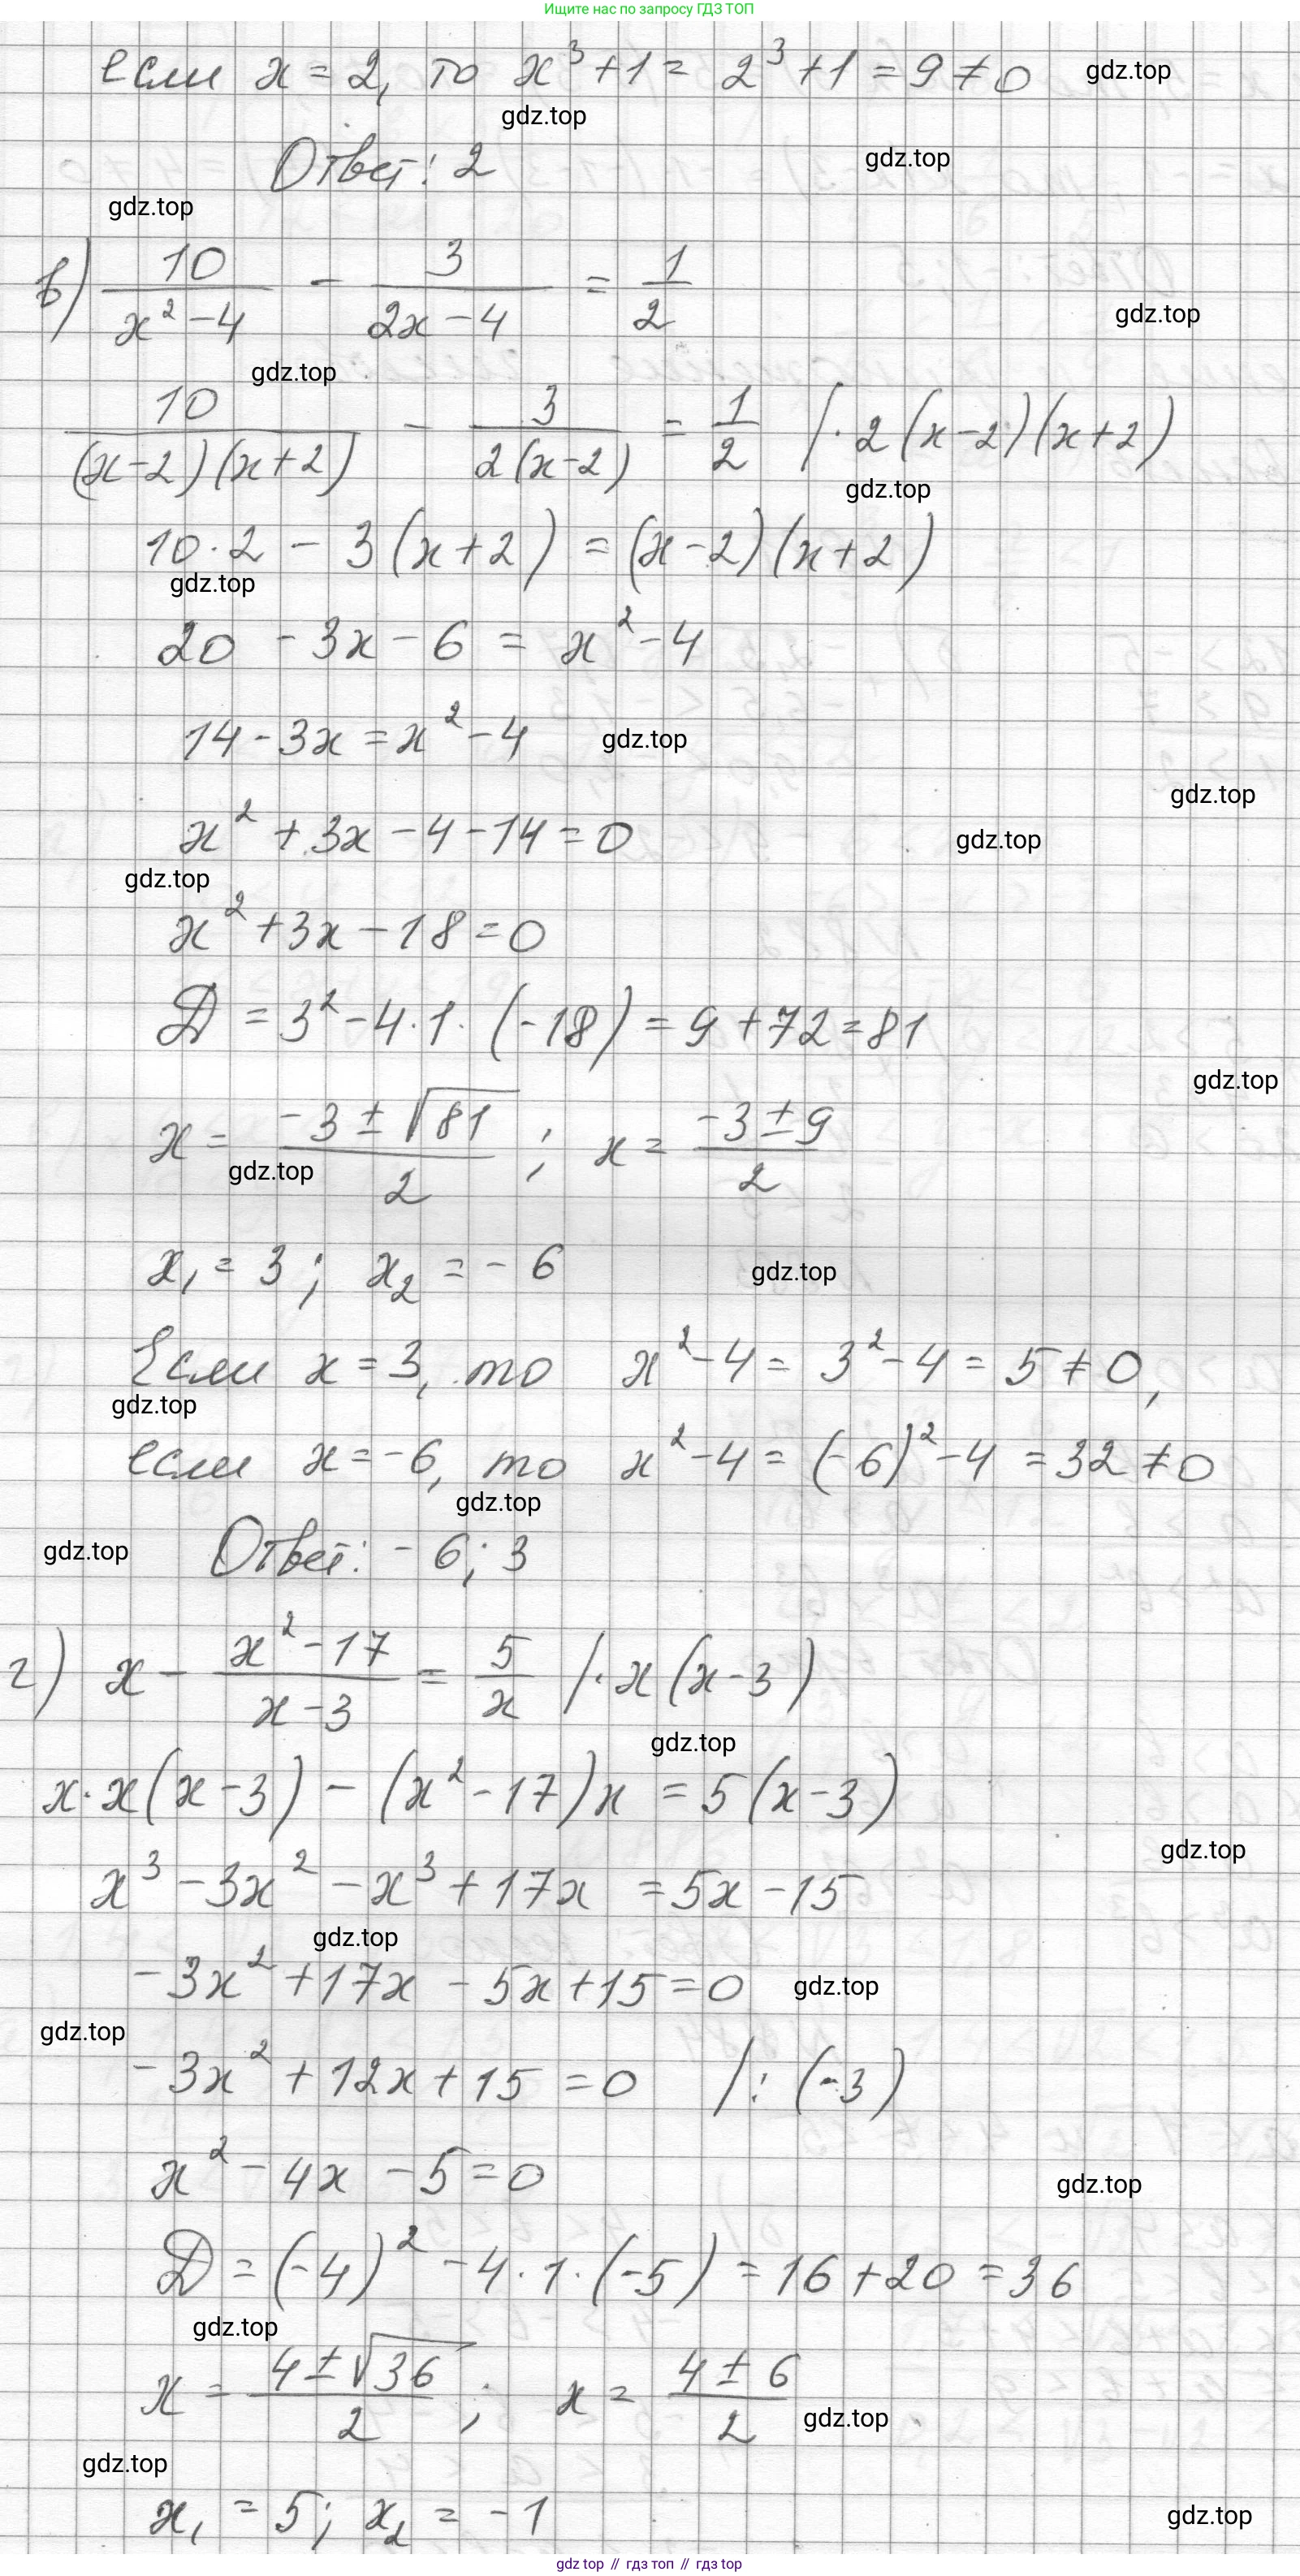 Ищите нас по запросу ГДЗ ТОП
если x = 2, то x³ + 1 = 2³ + 1 = 9 ≠ 0 gdz.top
gdz.top
Ответ: 2 gdz.top
gdz.top
в) 10/(x² - 4) - 3/(2x - 4) = 1/2
gdz.top
gdz.top
10/((x-2)(x+2)) - 3/(2(x-2)) = 1/2 | · 2(x-2)(x+2)
gdz.top
10 · 2 - 3(x+2) = (x-2)(x+2)
gdz.top
20 - 3x - 6 = x² - 4
14 - 3x = x² - 4 gdz.top
gdz.top
x² + 3x - 4 - 14 = 0 gdz.top
gdz.top
x² + 3x - 18 = 0
D = 3² - 4 · 1 · (-18) = 9 + 72 = 81
gdz.top
x = (-3 ± √81)/2 ; x = (-3 ± 9)/2
gdz.top
x₁ = 3; x₂ = -6 gdz.top
Если x = 3, то x² - 4 = 3² - 4 = 5 ≠ 0,
gdz.top
если x = -6, то x² - 4 = (-6)² - 4 = 32 ≠ 0
gdz.top
gdz.top Ответ: -6; 3
г) x - (x² - 17)/(x - 3) = 5/x | · x(x-3)
gdz.top
x · x(x-3) - (x² - 17)x = 5(x-3)
gdz.top
x³ - 3x² - x³ + 17x = 5x - 15
gdz.top
-3x² + 17x - 5x + 15 = 0 gdz.top
gdz.top
-3x² + 12x + 15 = 0 | : (-3)
x² - 4x - 5 = 0
gdz.top
D = (-4)² - 4 · 1 · (-5) = 16 + 20 = 36
gdz.top
x = (4 ± √36)/2 ; x = (4 ± 6)/2
gdz.top
gdz.top
x₁ = 5; x₂ = -1 gdz.top
gdz top // гдз топ // gdz top